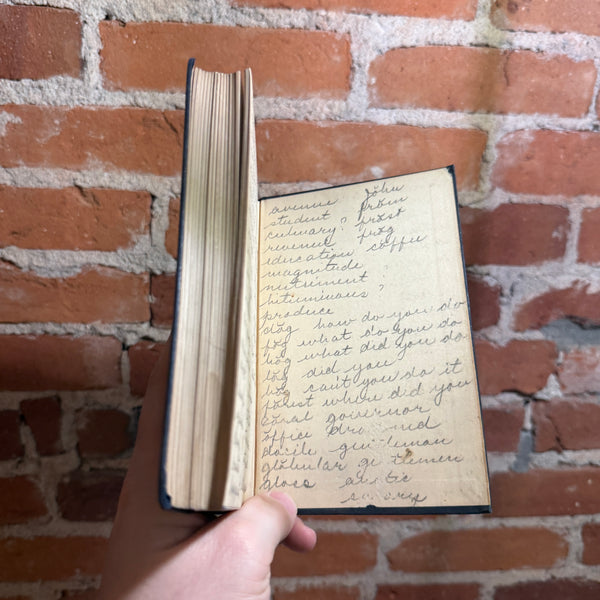 avenue John
student from
culinary? frost
revenue frog
education coffee
magnitude
nutriment
bituminous?
produce
dŏg how do you do
fŏg what do you do
hŏg what did you do
lŏg did you
hŏg can't you do it
forest where did you
coral governor
office
docile gentleman
globular gentlemen
gloss